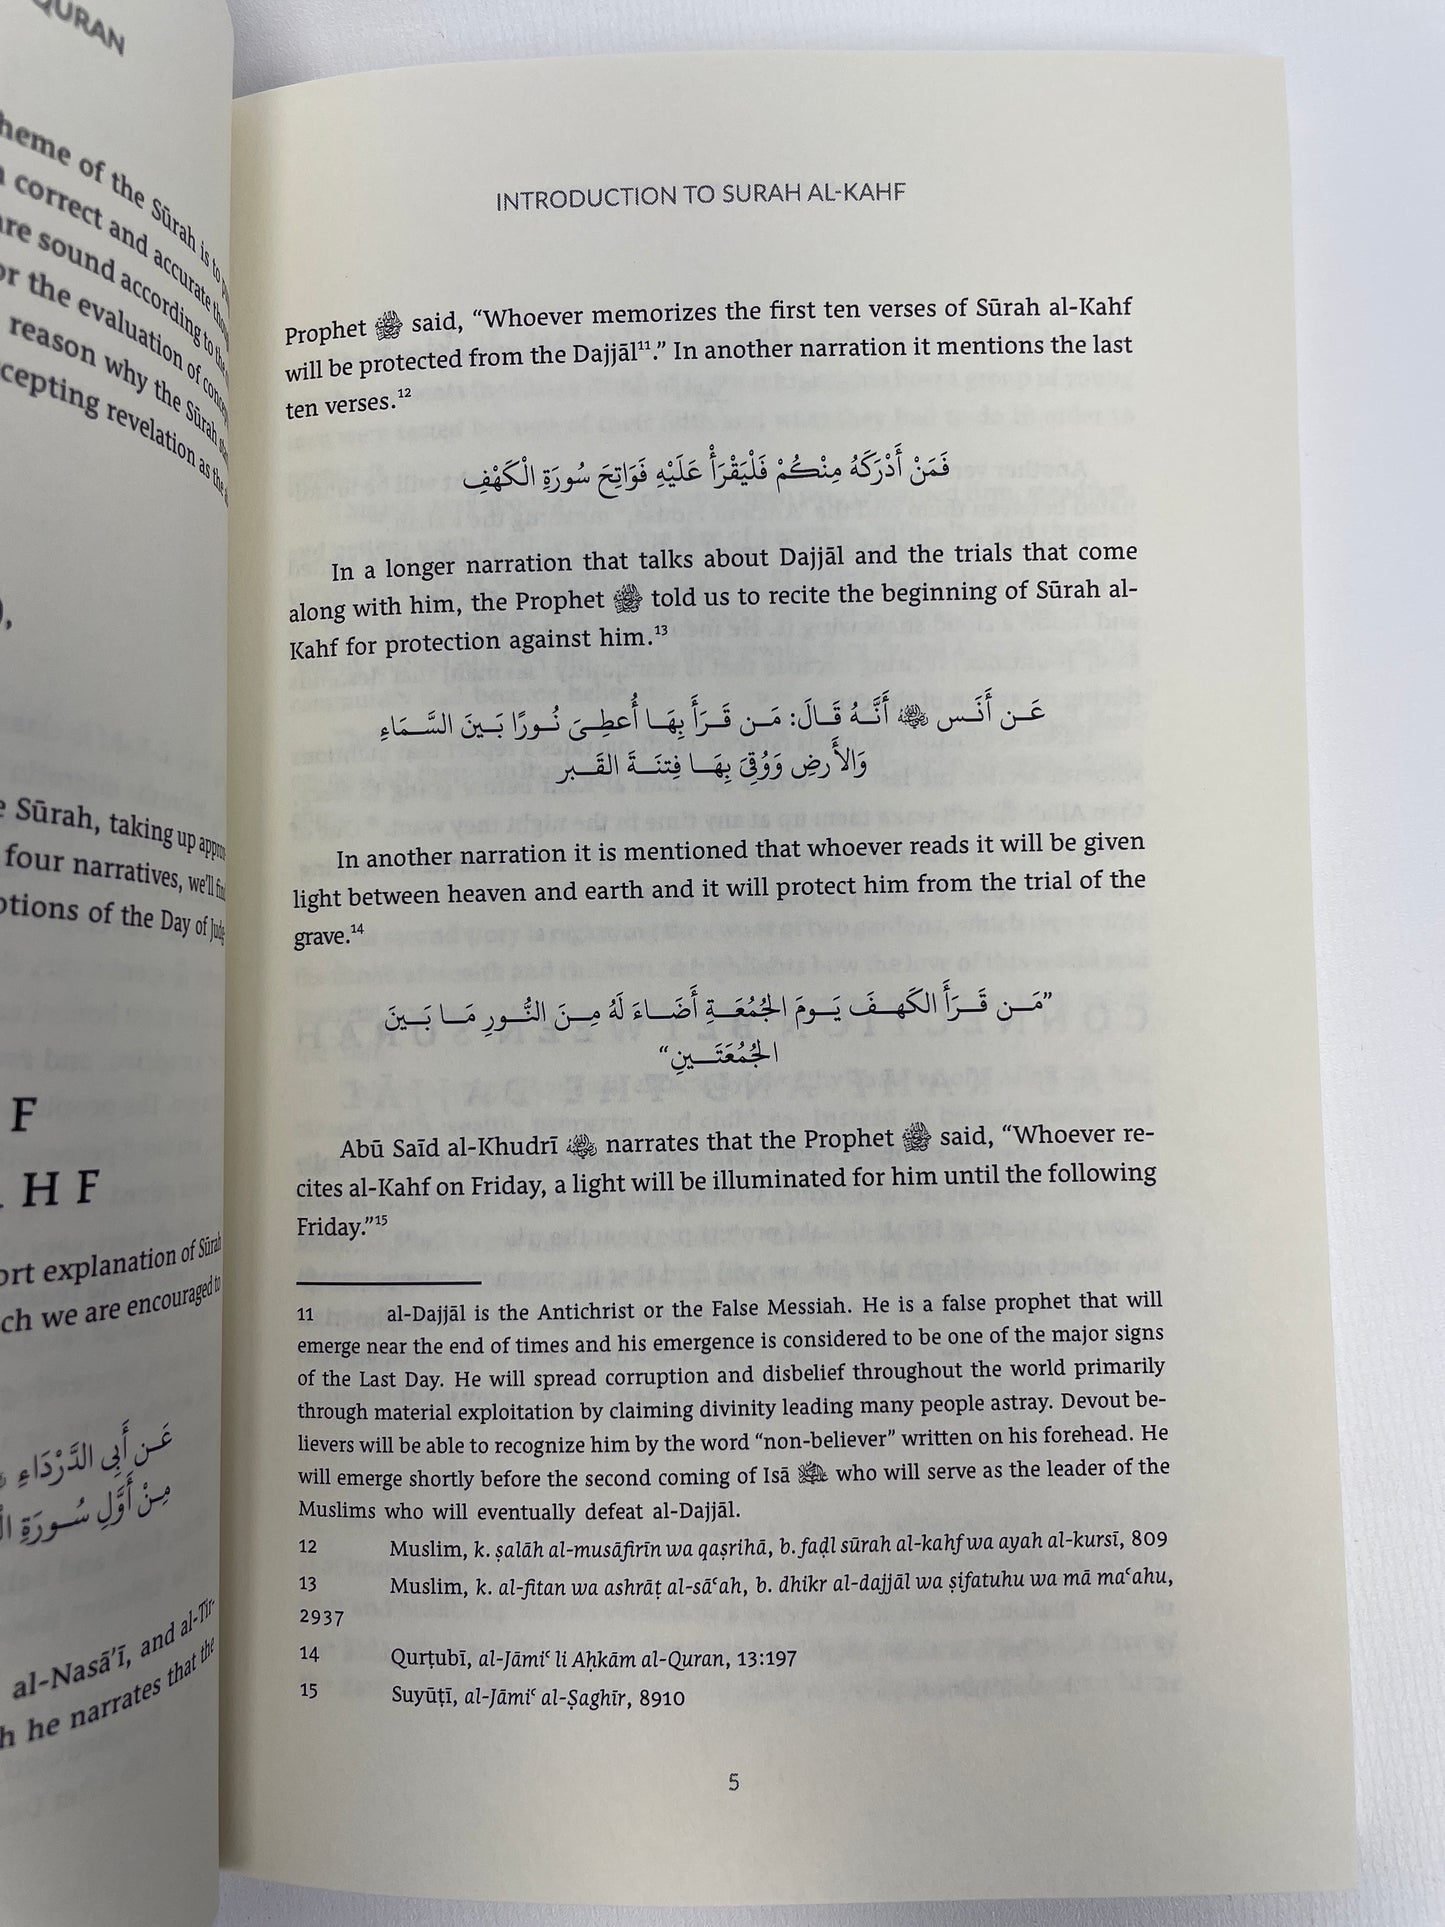 QURAN
heme of the Sūrah is to
correct and accurate
are sound according to the
or the evaluation of
reason why the Sūrah
ccepting revelation as the
e Sūrah, taking up
four narratives, we'll
otions of the Day of
F
H F
ort explanation of Sūrah
ch we are encouraged to
عَن أَبِي الدَّرْدَاءِ
مِنْ أَوَّلِ سُورَةِ
al-Nasā’ī, and al-Tir-
h he narrates that the
INTRODUCTION TO SURAH AL-KAHF
Prophet ﷺ said, “Whoever memorizes the first ten verses of Sūrah al-Kahf
will be protected from the Dajjāl¹¹.” In another narration it mentions the last
ten verses.¹²
فَمَنْ أَدْرَكَهُ مِنْكُمْ فَلْيَقْرَأْ عَلَيْهِ فَوَاتِحَ سُورَةِ الْكَهْفِ
In a longer narration that talks about Dajjāl and the trials that come
along with him, the Prophet ﷺ told us to recite the beginning of Sūrah al-
Kahf for protection against him.¹³
عَن أَنَس أَنَّهُ قَالَ: مَن قَرَأَ بِهَا أُعطِىَ نُورًا بَينَ السَّمَاءِ
وَالأَرضِ وَوُقِىَ بِهَا فِتنَةَ القَبر
In another narration it is mentioned that whoever reads it will be given
light between heaven and earth and it will protect him from the trial of the
grave.¹⁴
”مَن قَرَأَ الكَهفَ يَومَ الجُمُعَةِ أَضَاءَ لَهُ مِنَ النُّورِ مَا بَينَ
الجُمُعَتَينِ“
Abū Saīd al-Khudrī narrates that the Prophet ﷺ said, “Whoever re-
cites al-Kahf on Friday, a light will be illuminated for him until the following
Friday.”¹⁵
11 al-Dajjāl is the Antichrist or the False Messiah. He is a false prophet that will
emerge near the end of times and his emergence is considered to be one of the major signs
of the Last Day. He will spread corruption and disbelief throughout the world primarily
through material exploitation by claiming divinity leading many people astray. Devout be-
lievers will be able to recognize him by the word “non-believer” written on his forehead. He
will emerge shortly before the second coming of Isā who will serve as the leader of the
Muslims who will eventually defeat al-Dajjāl.
12 Muslim, k. ṣalāh al-musāfirīn wa qaṣrihā, b. faḍl sūrah al-kahf wa ayah al-kursī, 809
13 Muslim, k. al-fitan wa ashrāṭ al-sāʿah, b. dhikr al-dajjāl wa ṣifatuhu wa mā maʿahu,
2937
14 Qurṭubī, al-Jāmiʿ li Aḥkām al-Quran, 13:197
15 Suyūṭī, al-Jāmiʿ al-Ṣaghīr, 8910
5